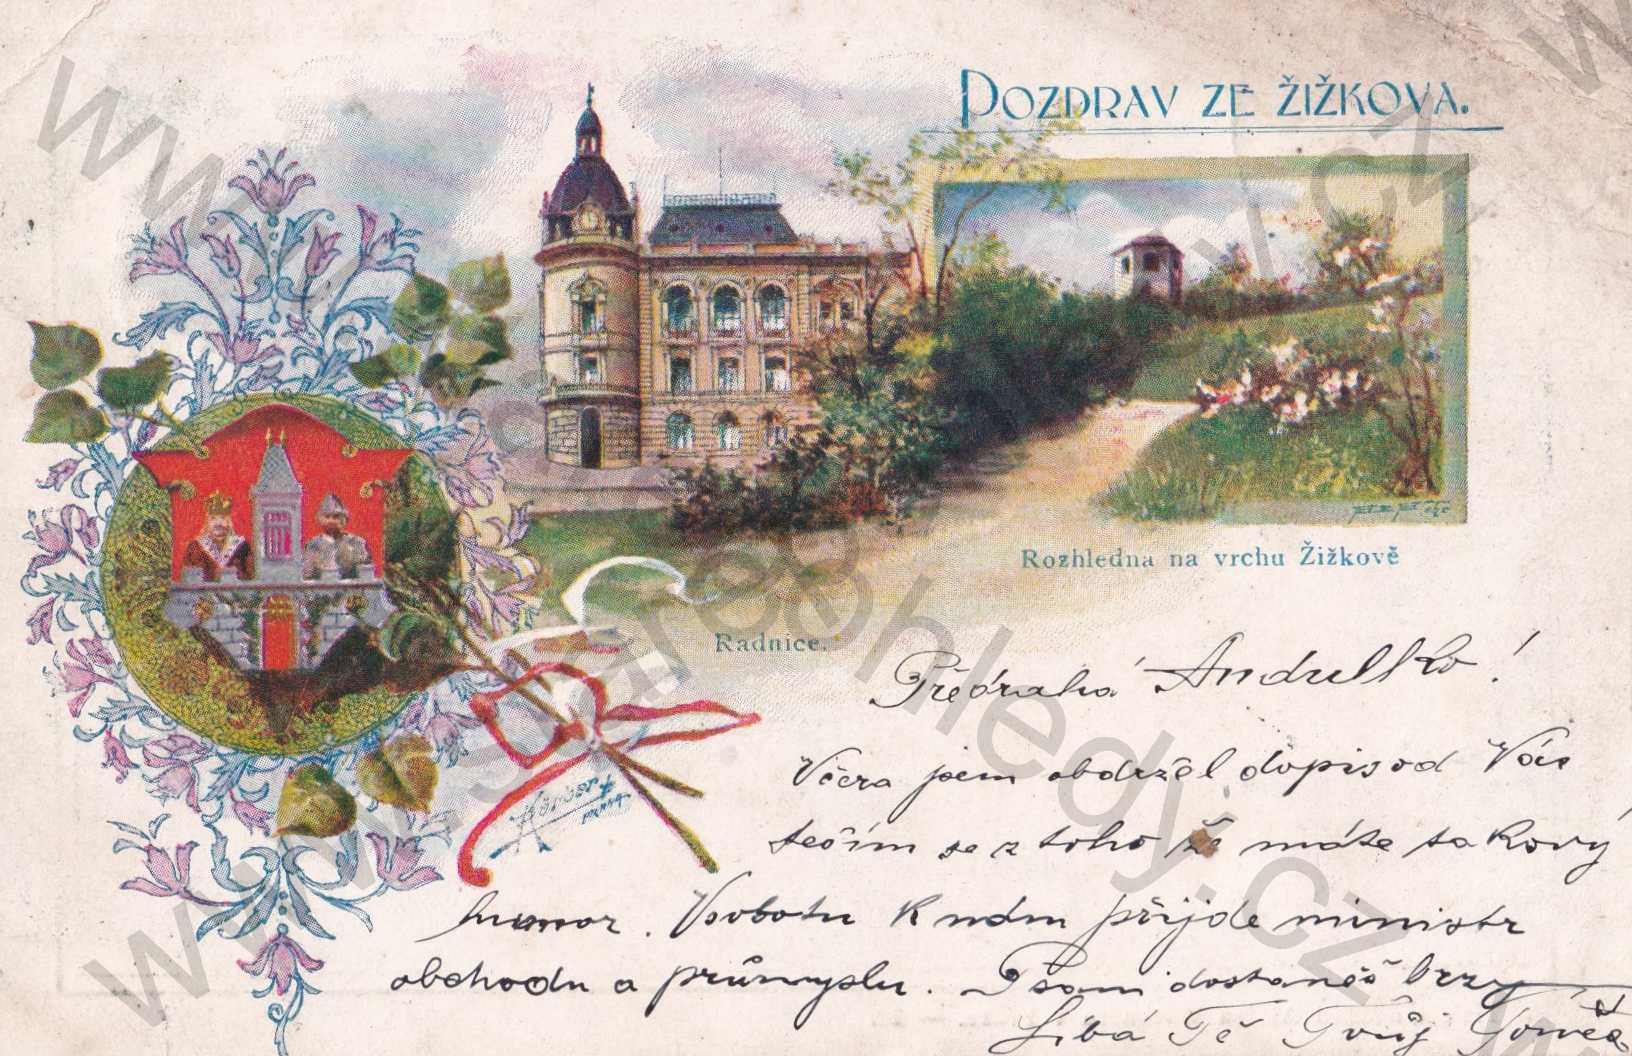 POZDRAV ZE ŽIŽKOVA.
Rozhledna na vrchu Žižkově
Radnice.
Předrahá Andulko!
Včera jsem obdržel dopis od Vás
těším se z toho že máte takový
humor. V sobotu k nám přijde ministr
obchodu a průmyslu. Psaní dostaneš brzy
Líbá Tě Tvůj
PRAHA
www.staropohledy.cz